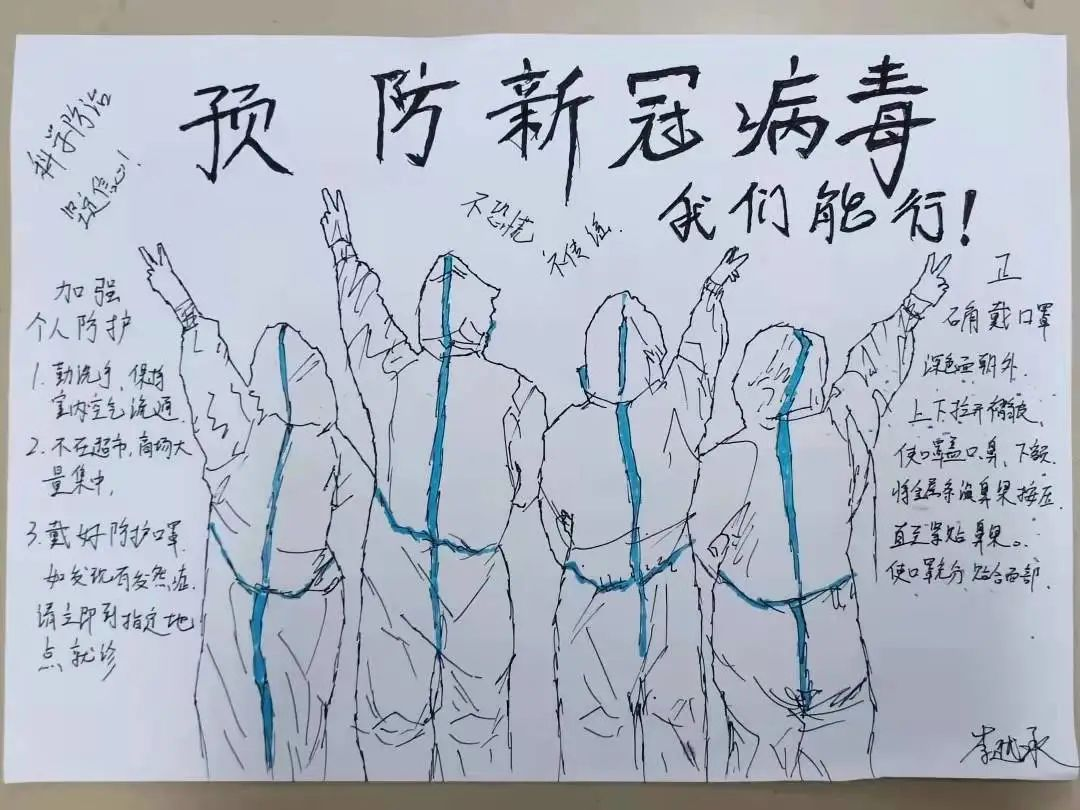 预防新冠病毒
我们能行!
科学防治
坚信心!
不恐慌
不传谣.
加强
个人防护
1. 勤洗手、保持
室内空气流通
2. 不在超市,商场大
量集中,
3. 戴好防护口罩.
如发现有发热症.
请立即到指定地
点就诊
正
确戴口罩
深色面朝外.
上下拉开褶皱,
使口罩盖口、鼻、下颌.
将金属条沿鼻梁按压
直至紧贴鼻梁。
使口罩充分贴合面部